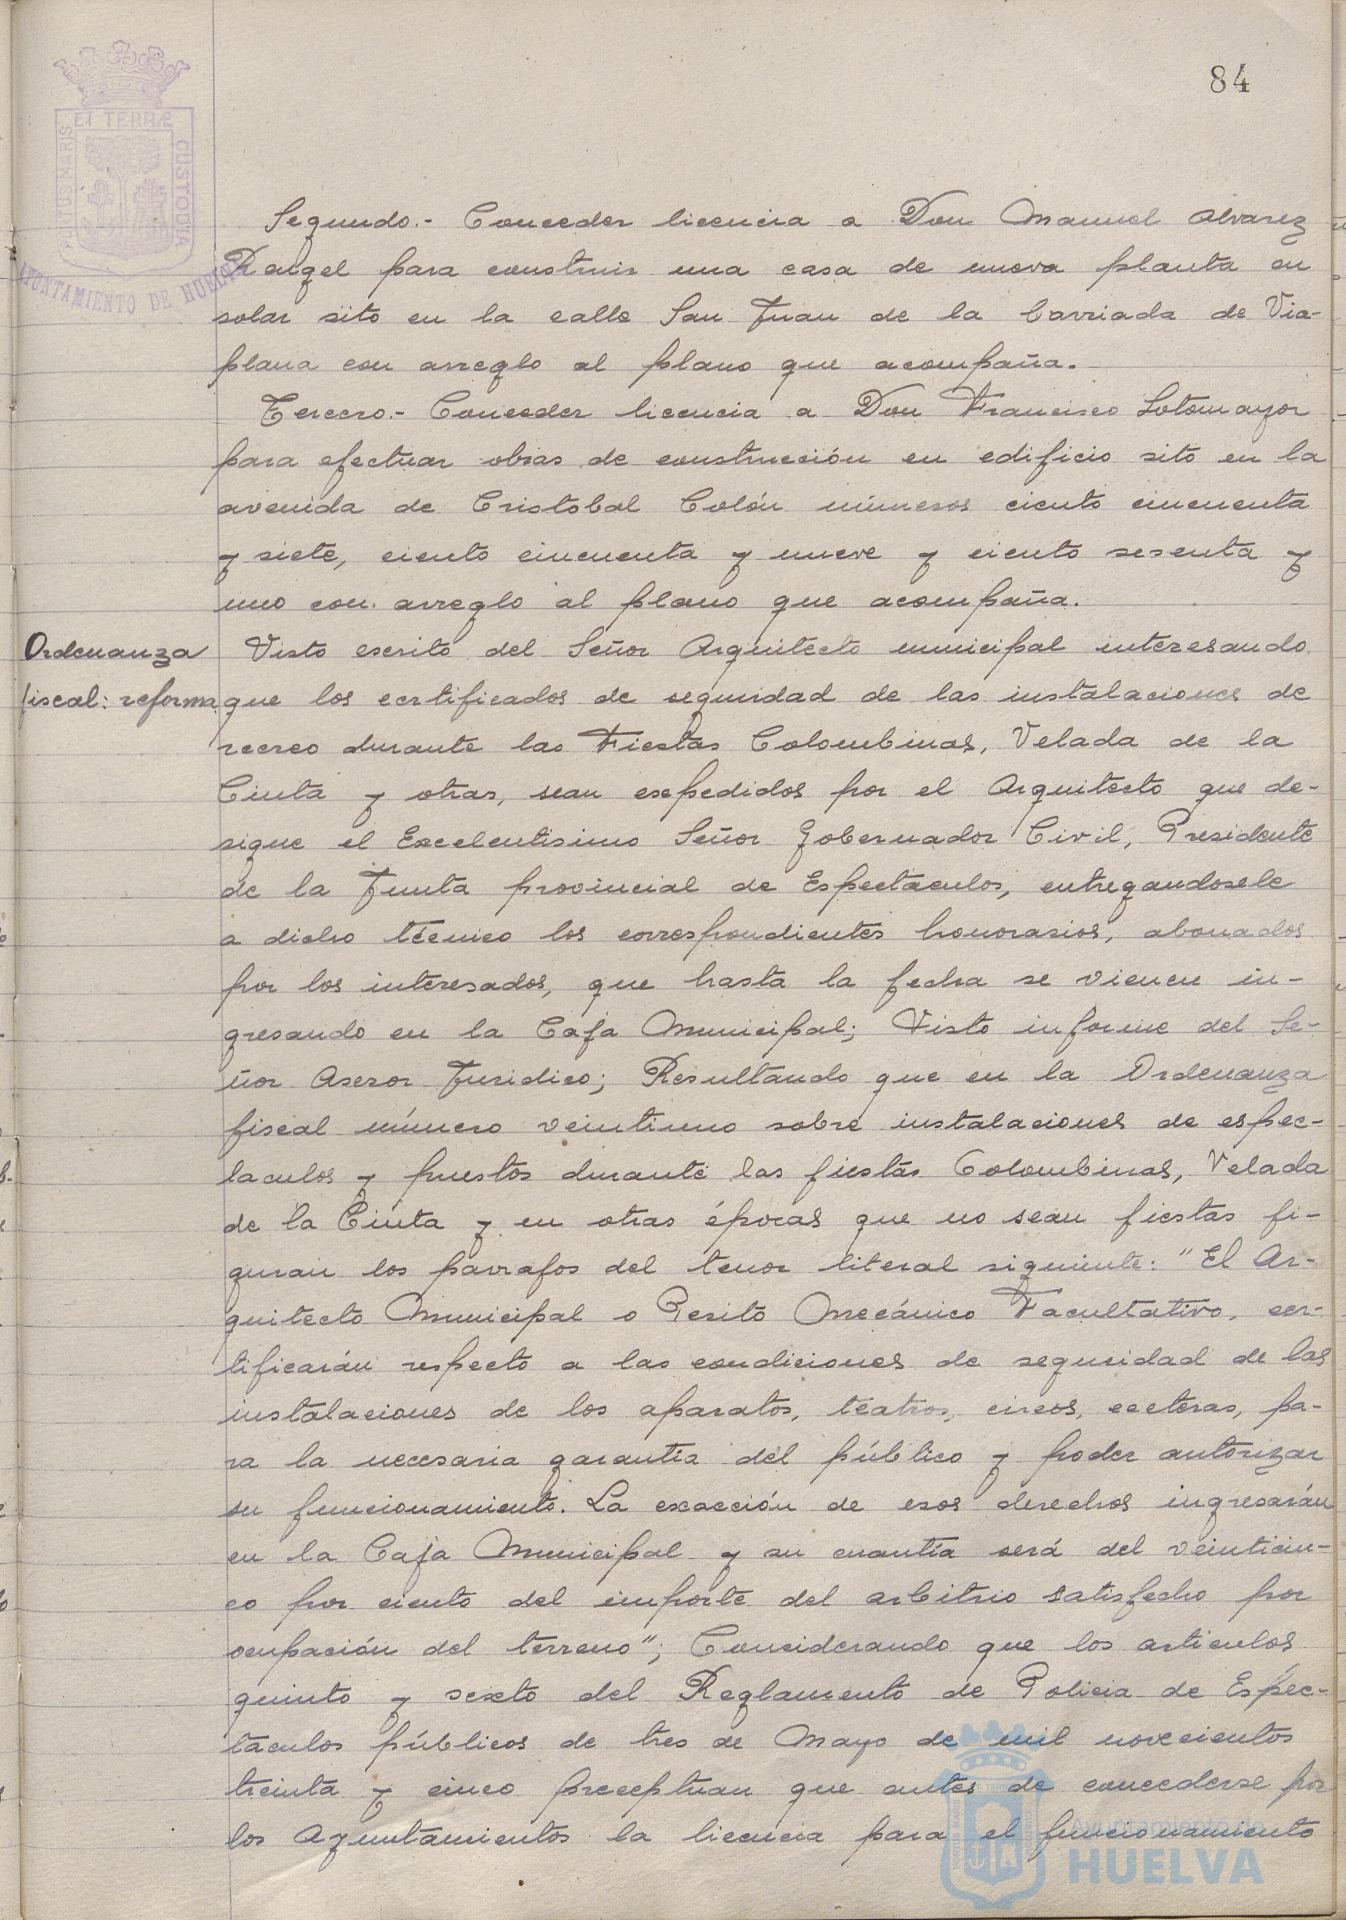 84
PORTUS MARIS ET TERRÆ CUSTODIA
AYUNTAMIENTO DE HUELVA
Segundo.- Conceder licencia a Don Manuel Alvarez
Rangel para construir una casa de nueva planta en
solar sito en la calle San Juan de la barriada de Via-
plana con arreglo al plano que acompaña.
Tercero.- Conceder licencia a Don Francisco Sotomayor
para efectuar obras de construcción en edificio sito en la
avenida de Cristobal Colón números ciento cincuenta
y siete, ciento cincuenta y nueve y ciento sesenta y
uno con arreglo al plano que acompaña.
Ordenanza
fiscal: reforma
Visto escrito del Señor Arquitecto municipal interesando
que los certificados de seguridad de las instalaciones de
recreo durante las Fiestas Colombinas, Velada de la
Cinta y otras, sean expedidos por el Arquitecto que de-
signe el Excelentisimo Señor Gobernador Civil, Presidente
de la Junta provincial de Espectaculos, entregandosele
a dicho técnico los correspondientes honorarios, abonados
por los interesados, que hasta la fecha se vienen in-
gresando en la Caja Municipal; Visto informe del Se-
ñor Asesor Juridico; Resultando que en la Ordenanza
fiscal número veintiuno sobre instalaciones de espec-
taculos y puestos durante las fiestas Colombinas, Velada
de la Cinta y en otras épocas que no sean fiestas fi-
guran los parrafos del tenor literal siguiente: "El Ar-
quitecto Municipal o Perito Mecánico Facultativo, cer-
tificarán respecto a las condiciones de seguridad de las
instalaciones de los aparatos, teatros, circos, ecteras, pa-
ra la necesaria garantia del público y poder autorizar
su funcionamiento. La exacción de esos derechos ingresarán
en la Caja Municipal y su cuantía será del veinticin-
co por ciento del importe del arbitrio satisfecho por
ocupación del terreno"; Considerando que los articulos
quinto y sexto del Reglamento de Policia de Espec-
táculos públicos de tres de Mayo de mil novecientos
treinta y cinco preceptuan que antes de concederse por
los Ayuntamientos la licencia para el funcionamiento
Ayuntamiento de
HUELVA